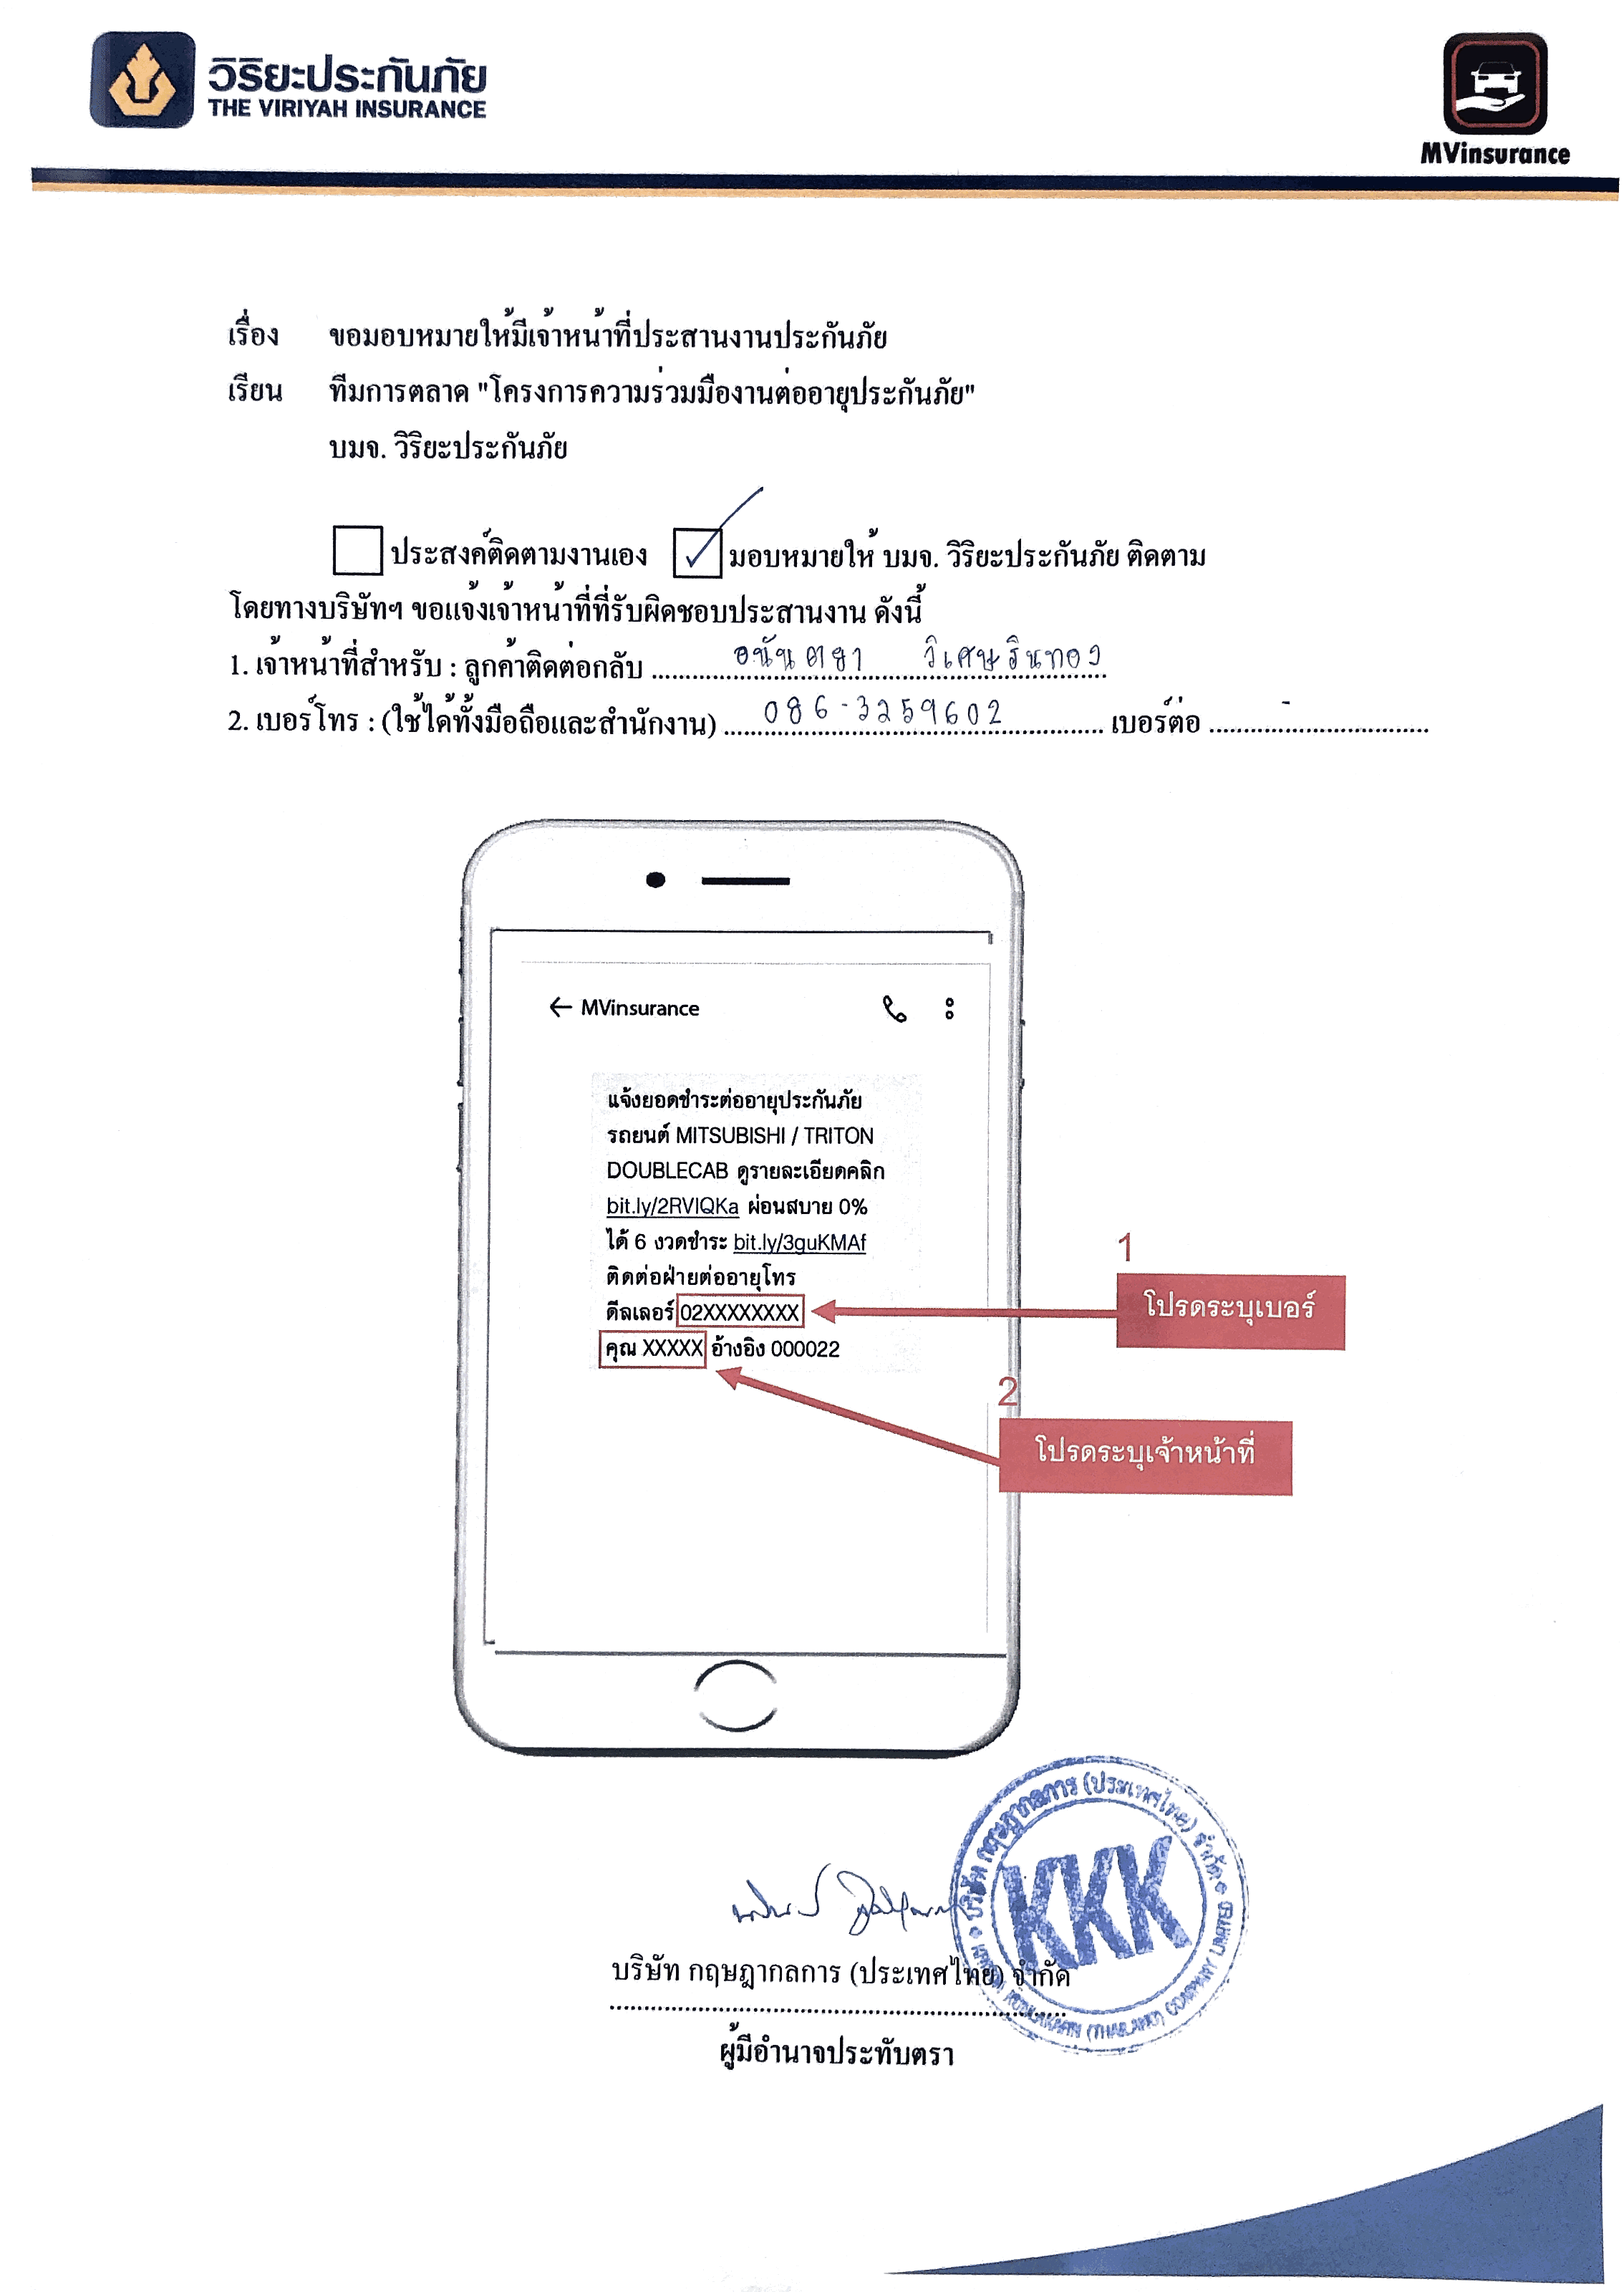 วิริยะประกันภัย
THE VIRIYAH INSURANCE
MVinsurance
เรื่อง ขอมอบหมายให้มีเจ้าหน้าที่ประสานงานประกันภัย
เรียน ทีมการตลาด "โครงการความร่วมมืองานต่ออายุประกันภัย"
บมจ. วิริยะประกันภัย
ประสงค์ติดตามงานเอง ✓ มอบหมายให้ บมจ. วิริยะประกันภัย ติดตาม
โดยทางบริษัทฯ ขอแจ้งเจ้าหน้าที่ที่รับผิดชอบประสานงาน ดังนี้
1. เจ้าหน้าที่สำหรับ : ลูกค้าติดต่อกลับ อนันตยา วิเศษรินทอง
2. เบอร์โทร : (ใช้ได้ทั้งมือถือและสำนักงาน) 086-3259602 เบอร์ต่อ -
← MVinsurance
แจ้งยอดชำระต่ออายุประกันภัย
รถยนต์ MITSUBISHI / TRITON
DOUBLECAB ดูรายละเอียดคลิก
bit.ly/2RVlQKa ผ่อนสบาย 0%
ได้ 6 งวดชำระ bit.ly/3guKMAf
ติดต่อฝ่ายต่ออายุโทร
ดีลเลอร์ 02XXXXXXXX
คุณ XXXXX อ้างอิง 000022
1
โปรดระบุเบอร์
2
โปรดระบุเจ้าหน้าที่
บริษัท กฤษฎากลการ (ประเทศไทย) จำกัด
KKK
บริษัท กฤษฎากลการ (ประเทศไทย) จำกัด
ผู้มีอำนาจประทับตรา